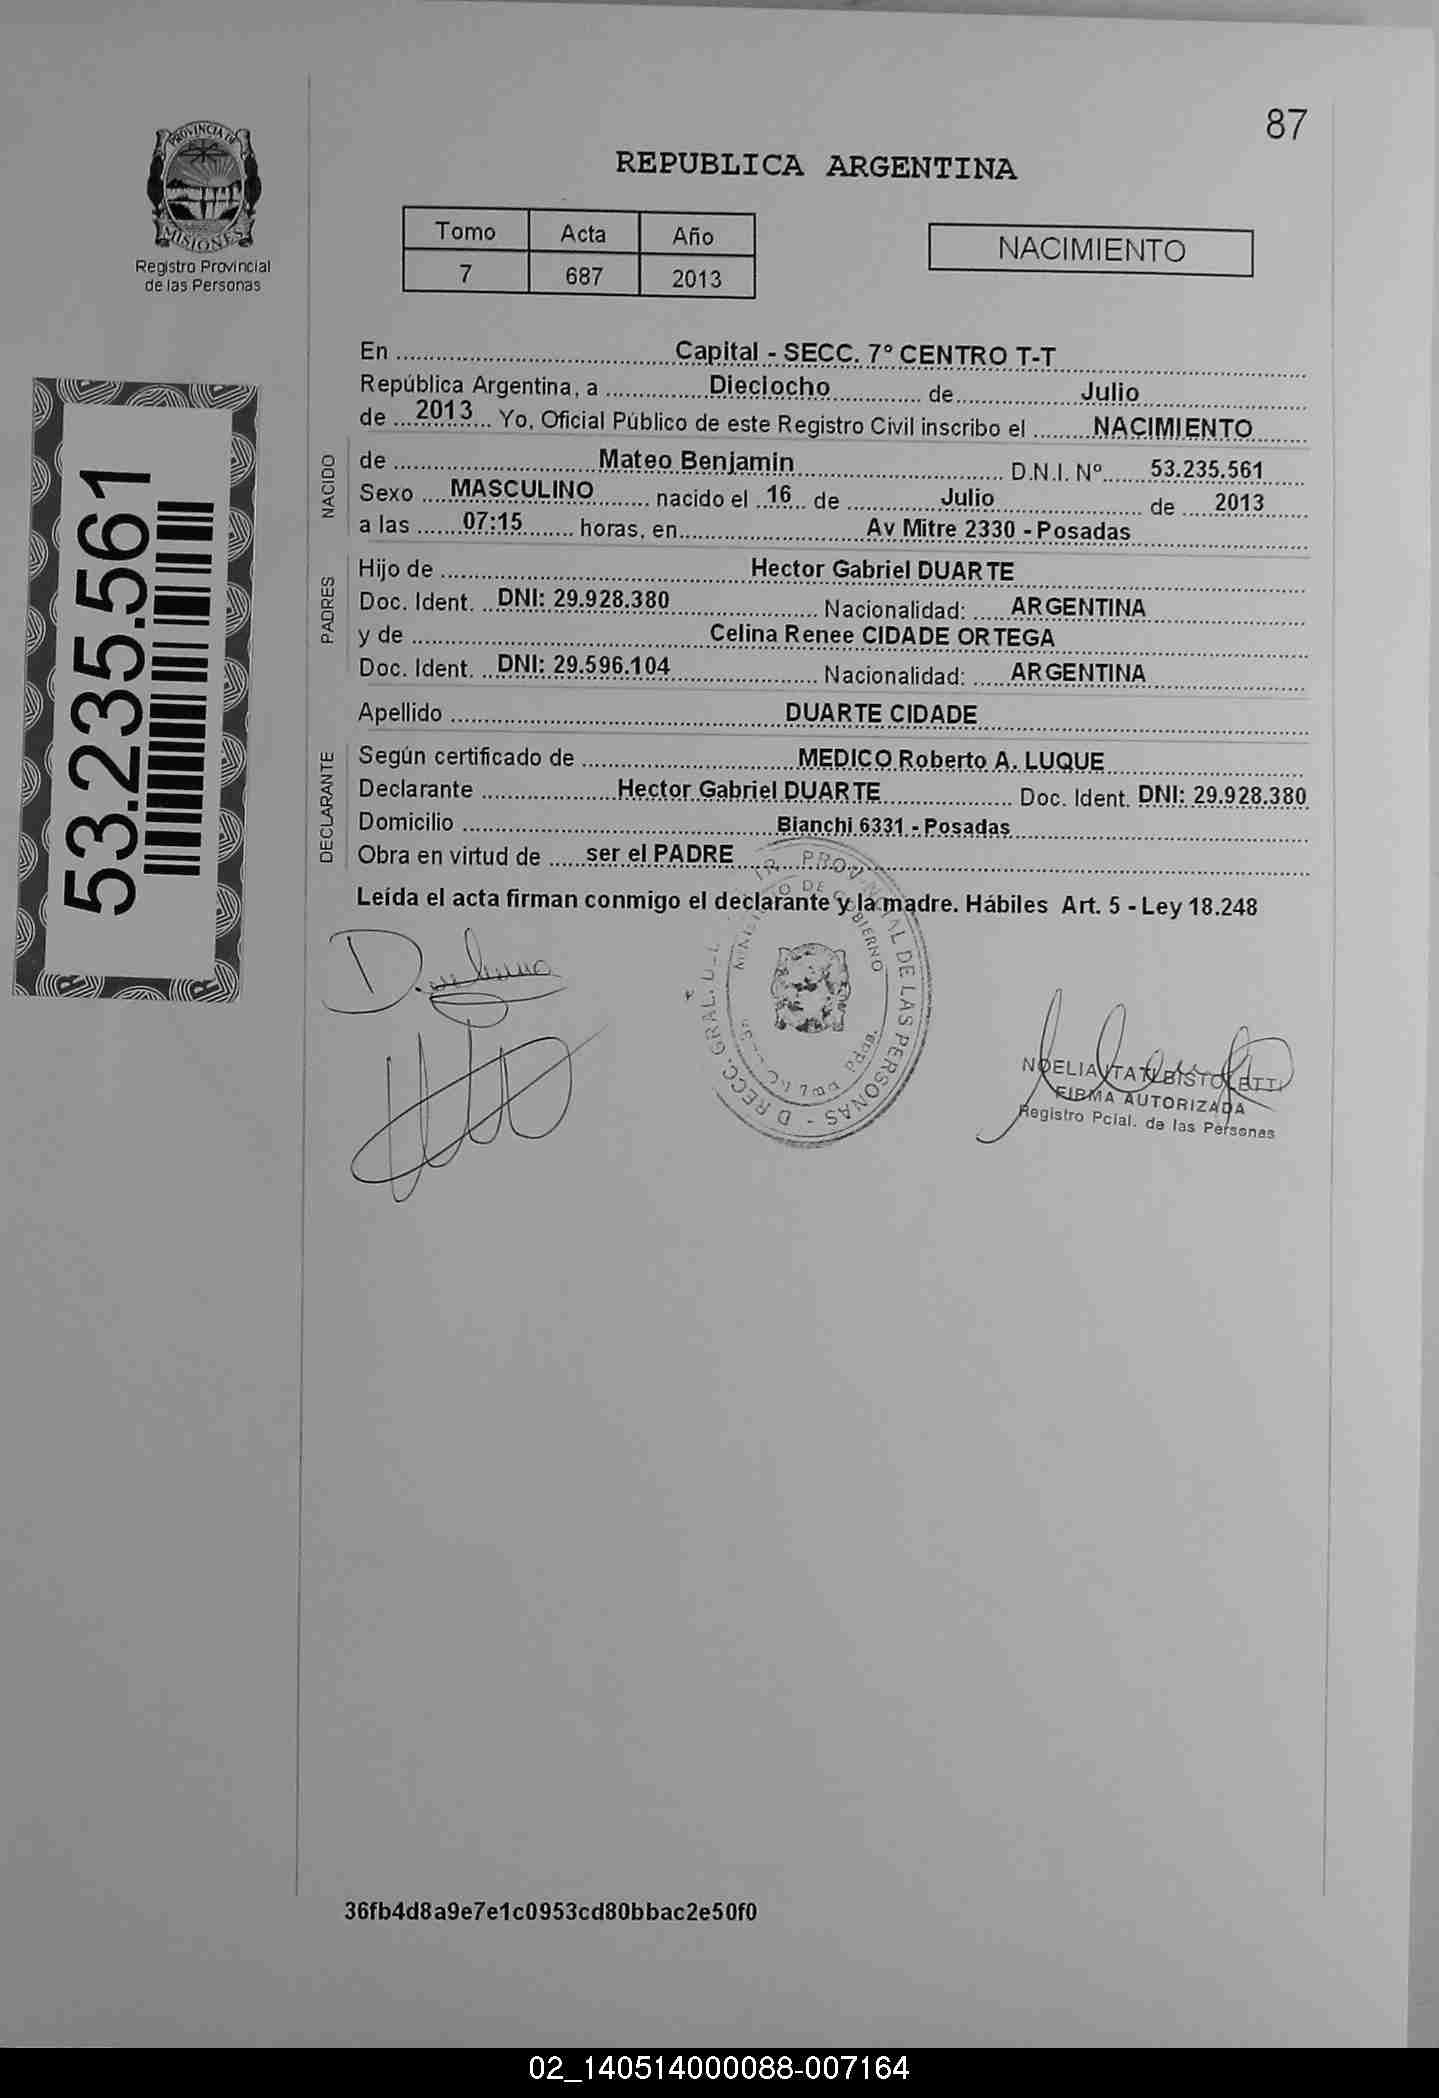 87
PROVINCIA DE
MISIONES
Registro Provincial
de las Personas
REPUBLICA ARGENTINA
Tomo Acta Año
7 687 2013
NACIMIENTO
53.235.561
En Capital - SECC. 7° CENTRO T-T
República Argentina, a Dieciocho de Julio
de 2013 Yo, Oficial Público de este Registro Civil inscribo el NACIMIENTO
NACIDO
de Mateo Benjamin D.N.I. Nº 53.235.561
Sexo MASCULINO nacido el 16 de Julio de 2013
a las 07:15 horas, en Av Mitre 2330 - Posadas
PADRES
Hijo de Hector Gabriel DUARTE
Doc. Ident. DNI: 29.928.380 Nacionalidad: ARGENTINA
y de Celina Renee CIDADE ORTEGA
Doc. Ident. DNI: 29.596.104 Nacionalidad: ARGENTINA
Apellido DUARTE CIDADE
DECLARANTE
Según certificado de MEDICO Roberto A. LUQUE
Declarante Hector Gabriel DUARTE Doc. Ident. DNI: 29.928.380
Domicilio Bianchi 6331 - Posadas
Obra en virtud de ser el PADRE
Leída el acta firman conmigo el declarante y la madre. Hábiles Art. 5 - Ley 18.248
PROVINCIAL DE LAS PERSONAS - DIRECC. GRAL.
DE GOBIERNO
NOELIA ITATI BISTOLETTI
FIRMA AUTORIZADA
Registro Pcial. de las Personas
36fb4d8a9e7e1c0953cd80bbac2e50f0
02_140514000088-007164